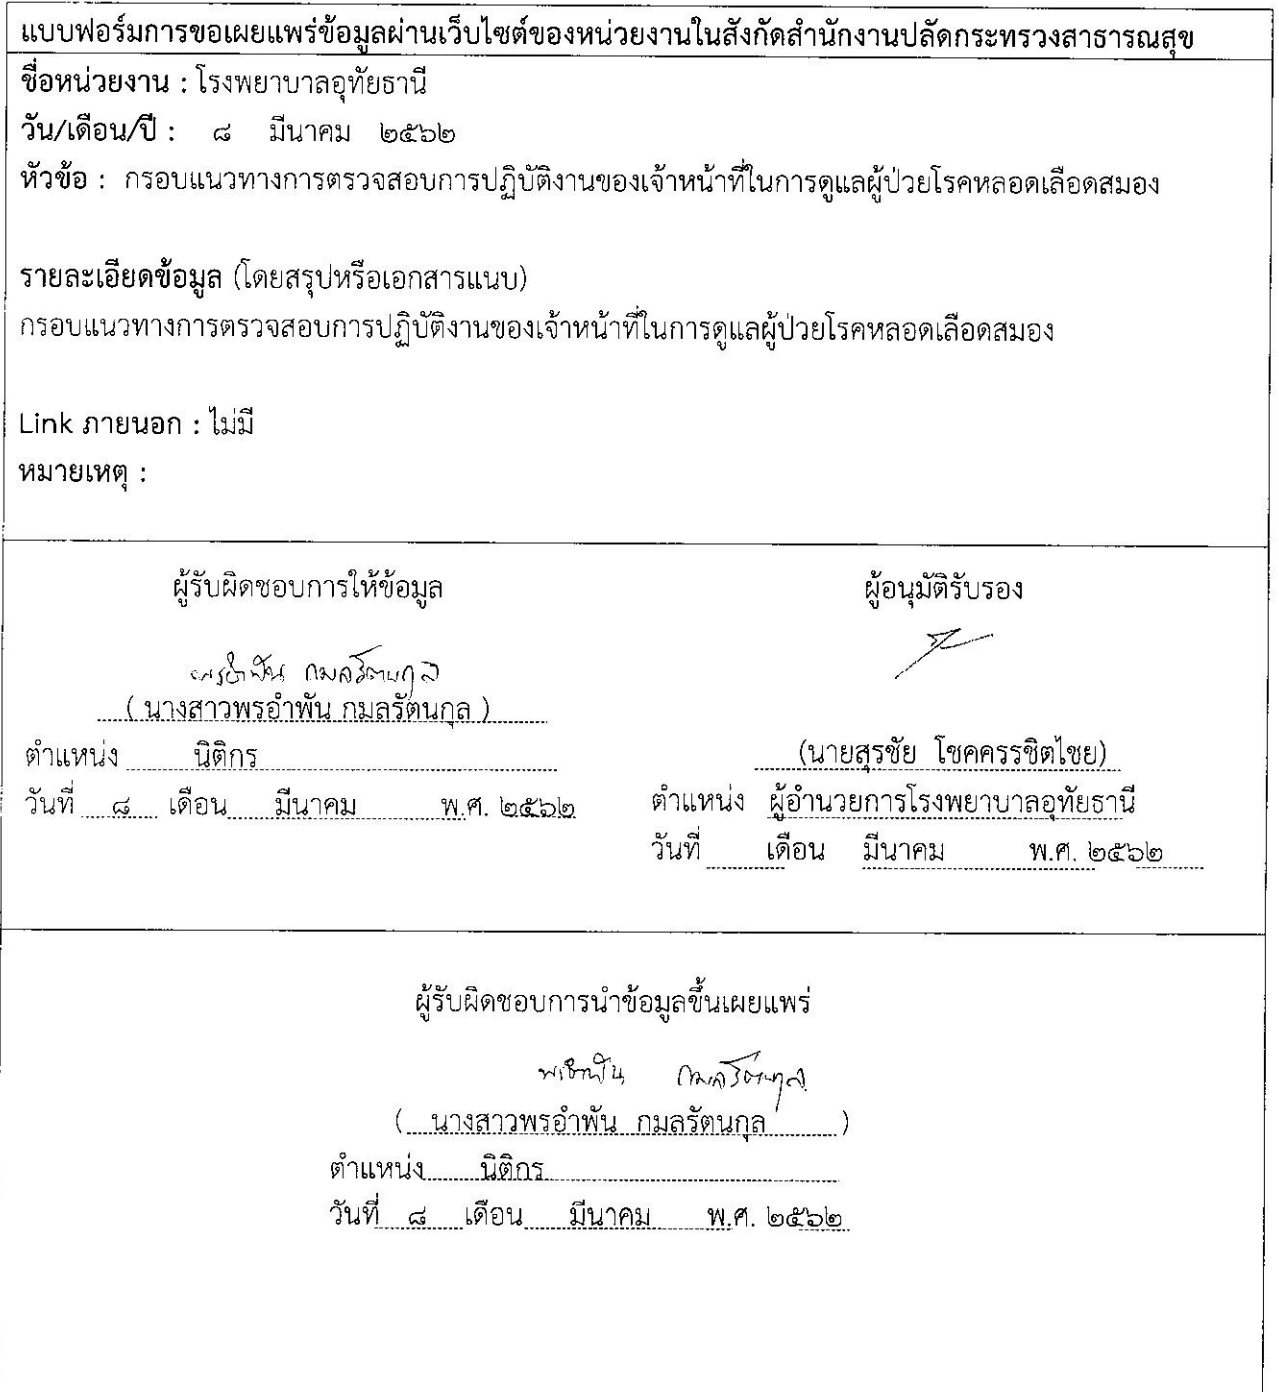 แบบฟอร์มการขอเผยแพร่ข้อมูลผ่านเว็บไซต์ของหน่วยงานในสังกัดสำนักงานปลัดกระทรวงสาธารณสุข
ชื่อหน่วยงาน : โรงพยาบาลอุทัยธานี
วัน/เดือน/ปี : ๘ มีนาคม ๒๕๖๒
หัวข้อ : กรอบแนวทางการตรวจสอบการปฏิบัติงานของเจ้าหน้าที่ในการดูแลผู้ป่วยโรคหลอดเลือดสมอง
รายละเอียดข้อมูล (โดยสรุปหรือเอกสารแนบ)
กรอบแนวทางการตรวจสอบการปฏิบัติงานของเจ้าหน้าที่ในการดูแลผู้ป่วยโรคหลอดเลือดสมอง
Link ภายนอก : ไม่มี
หมายเหตุ :
ผู้รับผิดชอบการให้ข้อมูล
พรอำพัน กมลรัตนกุล
( นางสาวพรอำพัน กมลรัตนกุล )
ตำแหน่ง นิติกร
วันที่ ๘ เดือน มีนาคม พ.ศ. ๒๕๖๒
ผู้อนุมัติรับรอง
(นายสุรชัย โชคครรชิตไชย)
ตำแหน่ง ผู้อำนวยการโรงพยาบาลอุทัยธานี
วันที่ เดือน มีนาคม พ.ศ. ๒๕๖๒
ผู้รับผิดชอบการนำข้อมูลขึ้นเผยแพร่
พรอำพัน กมลรัตนกุล
( นางสาวพรอำพัน กมลรัตนกุล )
ตำแหน่ง นิติกร
วันที่ ๘ เดือน มีนาคม พ.ศ. ๒๕๖๒